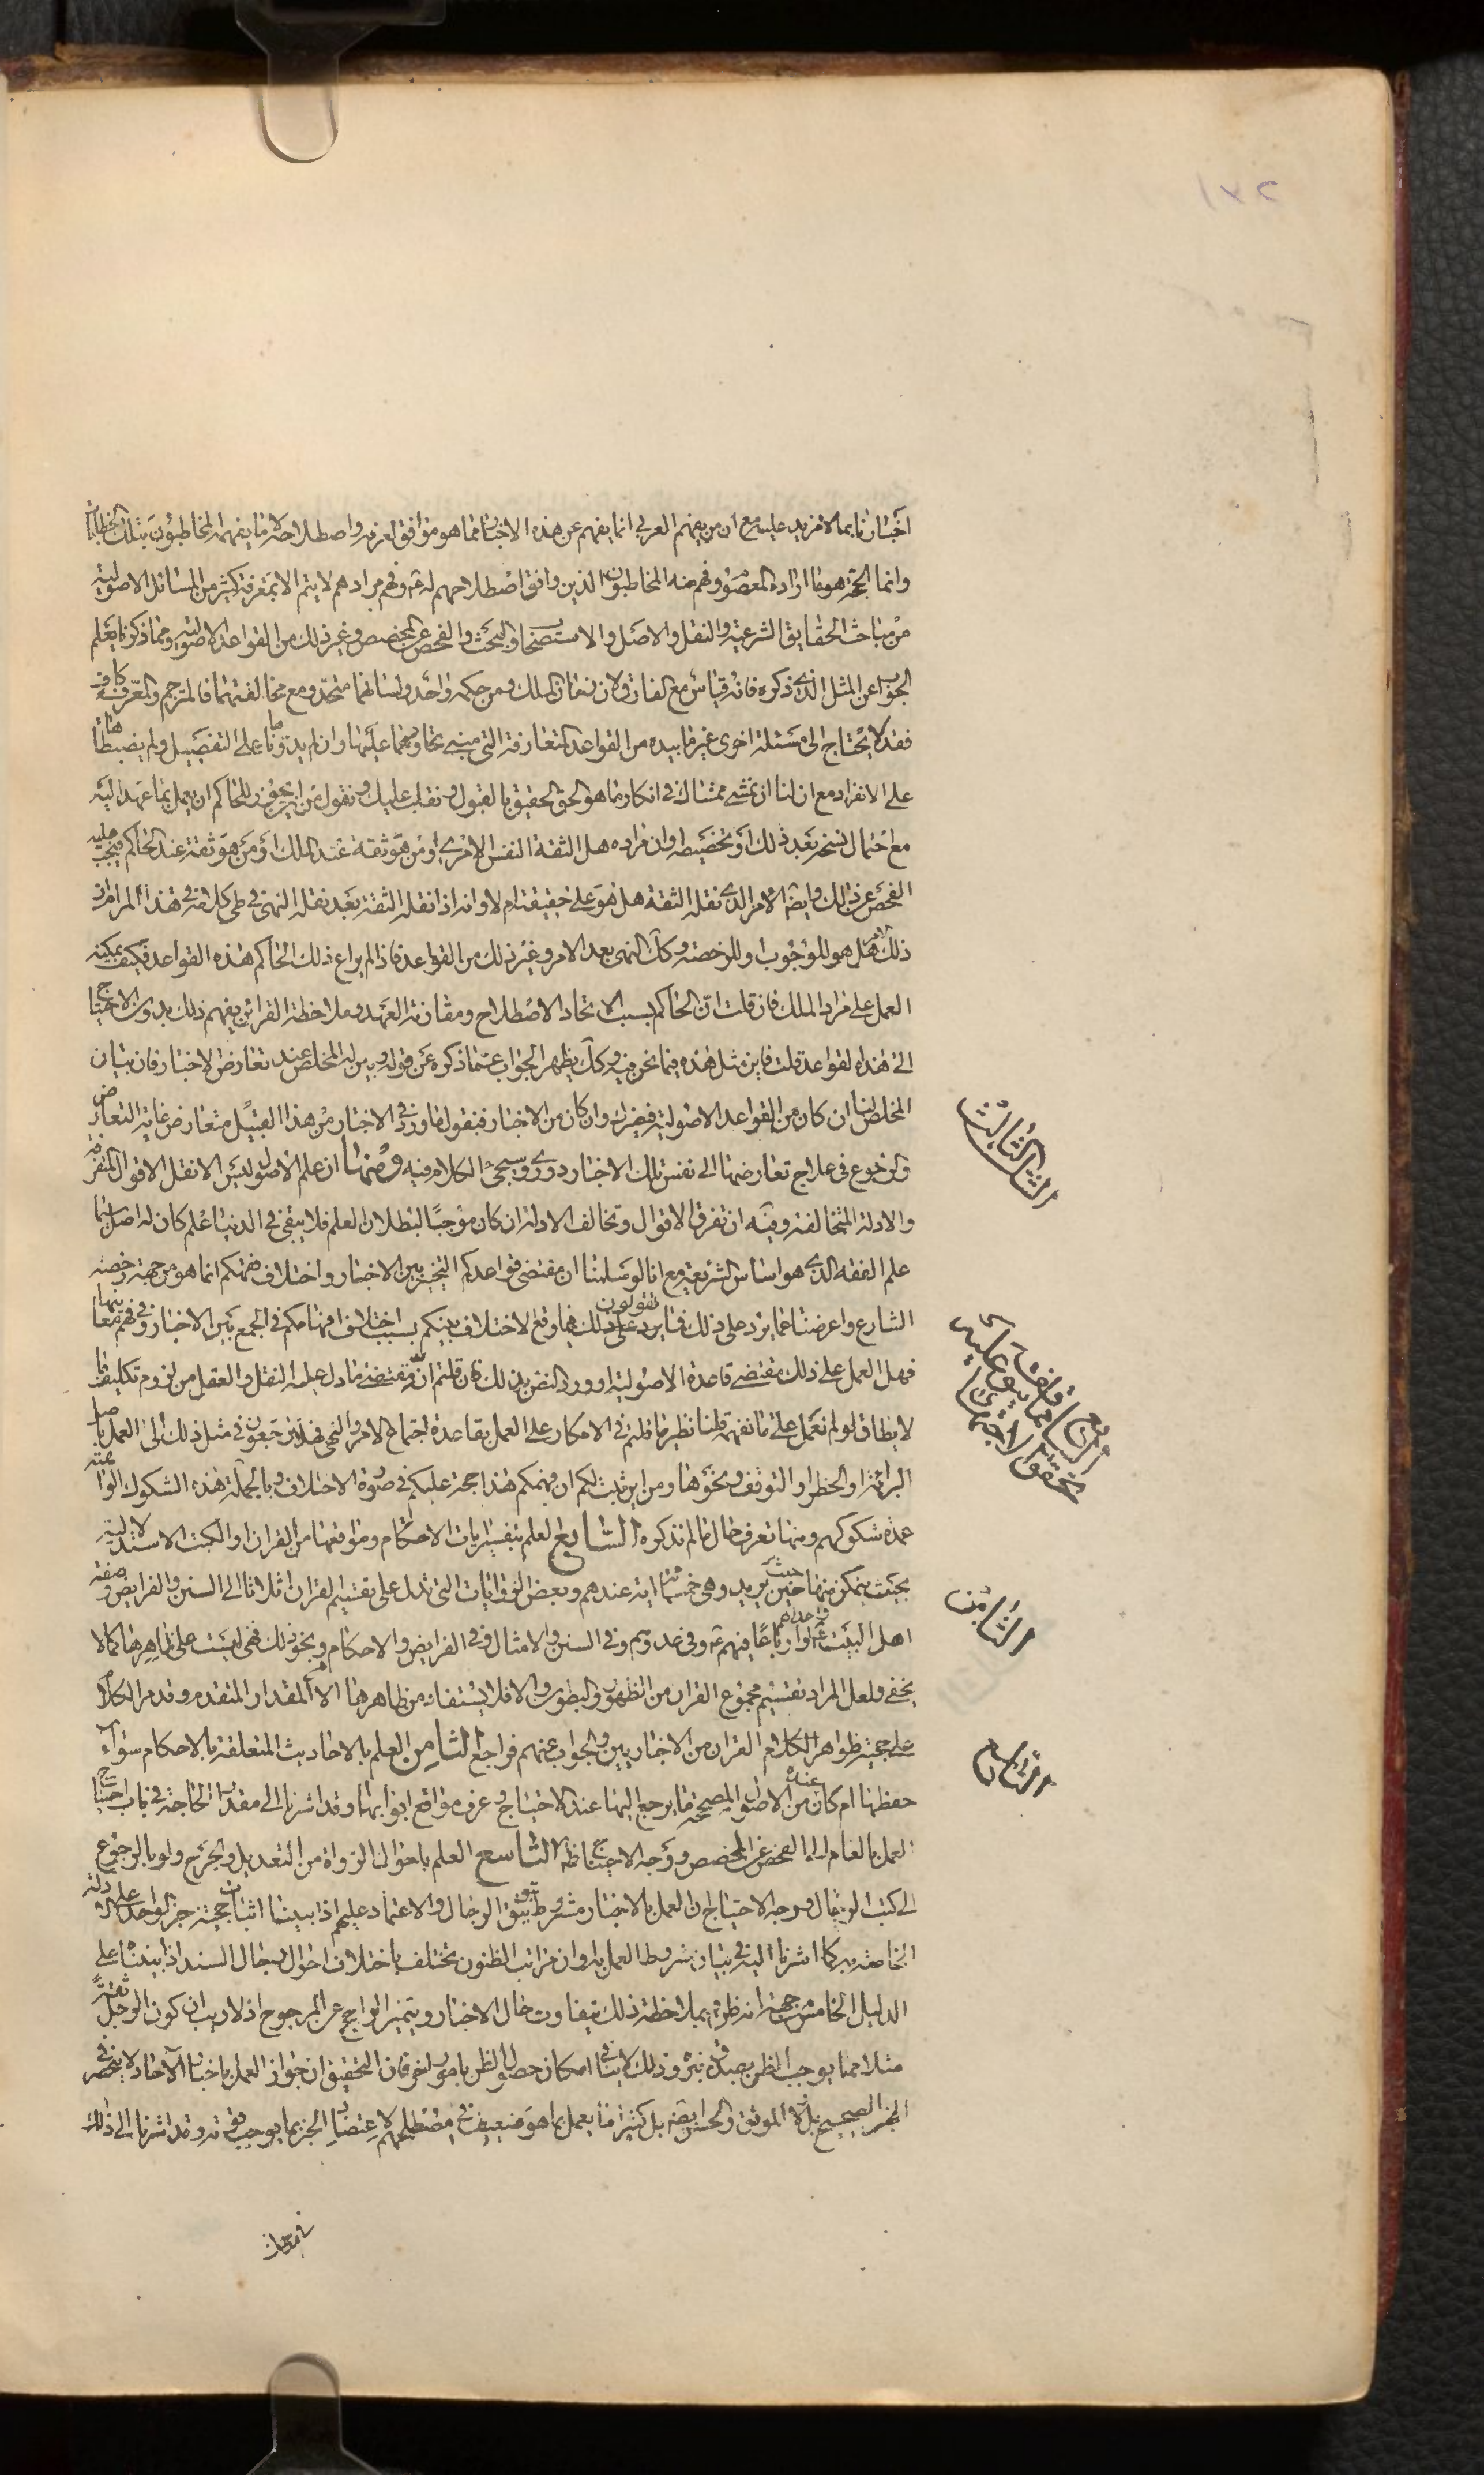 ١٧٢
اخبارنا بما لا مزيد عليه مع ان من يفهم العربي انما يفهم عن هذه الاخبار ما هو موافق لعرفه واصطلاحه لا ما يفهمه المخاطبون بتلك الخطابات
وانما الحجة هو ما اراده المعصوم وفهم منه المخاطبون الذين وافق اصطلاحهم له ع وفهم مرادهم لا يتم الا بمعرفة كثير من المسائل الاصولية
من مباحث الحقايق الشرعية والنقل والاصل والاستصحاب والبحث والفحص عن المخصص وغير ذلك من القواعد الاصولية ومما ذكرنا يعلم
الجواب عن المثل الذي ذكره فانه قياس مع الفارق لان زمان الملك ومن حكمه واحد ولسانهما متحد ومع مخالفتهما فالمترجم والمعرف كاف
فقد لا يحتاج الى مسئلة اخرى غير ما بيده من القواعد المتعارفة التي مبنى تحاورهما عليها وان لم يدونها على التفصيل ولم يضبطاها
على الانفراد مع ان لنا ان نمشي ممشاك في انكار ما هو الحق الحقيق بالقبول ونقلب عليك ونقول من اين يجوز للحاكم ان يعمل بما عهد اليه
مع احتمال نسخه بعد ذلك او تخصيصه وان مراده هل الثقة النفس الامري او من هو ثقة عند الملك او من هو ثقة عند الحاكم فيجب عليه
الفحص عن ذلك وايضا الامر الذي نقله الثقة هل هو على حقيقته ام لا وانه اذا نقله الثقة بعد نقله النهي في طي كلامه هذا المرام في
ذلك الامر هل هو للوجوب او للرخصة وكك النهي بعد الامر وغير ذلك من القواعد فاذا لم يراع ذلك الحاكم هذه القواعد فكيف يمكنه
العمل على مراد الملك فان قلت ان الحاكم بسبب الاتحاد الاصطلاح ومقارنة العهد وملاحظة القرائن يفهم ذلك بدون الاحتياج
الى هذه القواعد قلت فاين مثل هذه فيما نحن فيه وكك يظهر الجواب عما ذكره عن قوله وبين له المخلص عند تعارض الاخبار فان بيان
المخلص لنا ان كان من القواعد الاصولية فيضرك وان كان من الاخبار فنقول ما ورد في الاخبار من هذا القبيل متعارض غاية التعارض
والرجوع في علاج تعارضها الى نفس تلك الاخبار دوري وسيجئ الكلام فيه ومنها ان علم الاصول ليس الا نقل الاقوال المتفرقة
والادلة المتخالفة وفيه ان تفرق الاقوال وتخالف الادلة ان كان موجبا لبطلان العلم فلا يبقى في الدنيا علم كان له اصل سيما
علم الفقه الذي هو اساس الشريعة مع انا لو سلمنا ان مقتضى قواعدكم التخيير بين الاخبار واختلاف فهمكم انما هو من جهة رخصة
الشارع واعرضنا عما يرد على ذلك فما تقولون يرد على ذلك فيما وقع الاختلاف بينكم بسبب اختلاف افهامكم في الجمع بين الاخبار وفي فهم معانيها
فهل العمل على ذلك مقتضى قاعدة الاصولية او ورد النص بذلك فان قلتم انه مقتضى ما دل عليه النقل والعقل من لزوم تكليف ما
لا يطاق لو لم نعمل على ما نفهمه قلنا نظير ما قلتم في الانكار على العمل بقاعدة اجتماع الامر والنهي فهلا ترجعون في مثل ذلك الى العمل باصل
البرائة او الحظر او التوقف ونحوها ومن اين ثبت لكم ان فهمكم هذا حجة عليكم في صورة الاختلاف وبالجملة هذه الشكوك الواهية
عمدة شكوكهم ومنها تعرف حال ما لم نذكره السابع العلم بتفسير ايات الاحكام ومواقعها من القران او الكتب الاستدلالية
بحيث يتمكن منها حيث حين يريد وهي خمسمائة اية عندهم وبعض الروايات التي تدل على تقسيم القران اثلاثا الى السنن والفرايض وصفة
اهل البيت ع واعدائهم او ارباعا فيهم ع وفي عدوهم وفي السنن والامثال وفي الفرايض والاحكام ونحو ذلك فهي ليست على ظاهرها كما لا
يخفى ولعل المراد تقسيم مجموع القران من الظهور والبطون والا فلا يستفاد من ظاهرها الا المقدار المتقدم وقد مر الكلام
على حجية ظواهر الكلام القران من الاخباريين والجواب عنهم فراجع الثامن العلم بالاحاديث المتعلقة بالاحكام سواء
حفظها ام كان عنده من الاصول المصححة ما يرجع اليها عند الاحتياج وعرف مواقع ابوابها وقد اشرنا الى مقدار الحاجة في باب احتياج
العمل بالعام الى الفحص عن المخصص ووجه الاحتياج ظاهر التاسع العلم باحوال الرواة من التعديل والجرح ولو بالرجوع
الى كتب الرجال ووجه الاحتياج ان العمل بالاخبار مشروط بتوثيق الرجال والاعتماد عليهم اذا بنينا اثبات حجية خبر الواحد على الادلة
الخاصة به كما اشرنا اليه في بيان شروط العمل به وان مراتب الظنون تختلف باختلاف احوال رجال السند اذا بنينا على
الدليل الخامس من جهة انه ظن فبملاحظة ذلك يتفاوت حال الاخبار ويتميز الراجح عن المرجوح اذ لا ريب ان كون الرجل ثقة
مثلا مما يوجب الظن بصدق خبره وذلك لا ينافي امكان حصول الظن بامور اخر فان التحقيق ان جواز العمل باخبار الآحاد لا ينحصر في
الخبر الصحيح بل الموثق والحسن ايضا بل كثيرا ما يعمل بما هو ضعيف في مصطلحهم لاعتضاد الخبر بما يوجب قوته وقد اشرنا الى ذلك
في مباحث
الثالث
الرابع
الثامن
التاسع